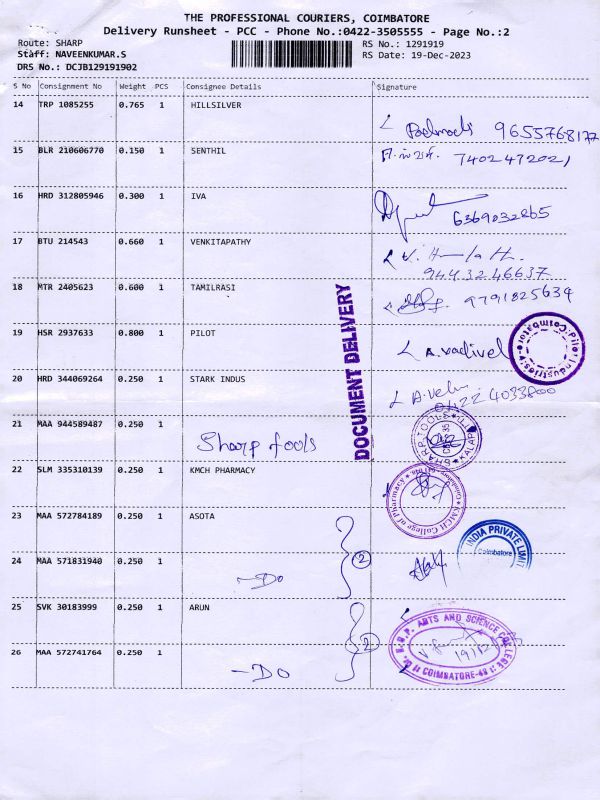 THE PROFESSIONAL COURIERS, COIMBATORE
Delivery Runsheet - PCC - Phone No.:0422-3505555 - Page No.:2
Route: SHARP
RS No.: 1291919
Staff: NAVEENKUMAR.S
RS Date: 19-Dec-2023
DRS No.: DCJB129191902
S No Consignment No Weight PCS Consignee Details Signature
14 TRP 1085255 0.765 1 HILLSILVER
9655768177
15 BLR 210606770 0.150 1 SENTHIL
7402472021
16 HRD 312805946 0.300 1 IVA
6369032265
17 BTU 214543 0.660 1 VENKITAPATHY
9443246637
18 MTR 2405623 0.600 1 TAMILRASI
9791825634
DOCUMENT DELIVERY
19 HSR 2937633 0.800 1 PILOT
A.vadivel
Pilot Industries Coimbatore
20 HRD 344069264 0.250 1 STARK INDUS
A.velu
0422 4033800
21 MAA 944589487 0.250 1
Sharp tools
SHARP TOOLS
22 SLM 335310139 0.250 1 KMCH PHARMACY
KMCH College of Pharmacy
23 MAA 572784189 0.250 1 ASOTA
2
INDIA PRIVATE LIMI
Coimbatore
24 MAA 571831940 0.250 1
-Do
25 SVK 30183999 0.250 1 ARUN
2
ARTS AND SCIENCE COLLEGE
19/12
COIMBATORE-48
26 MAA 572741764 0.250 1
-Do